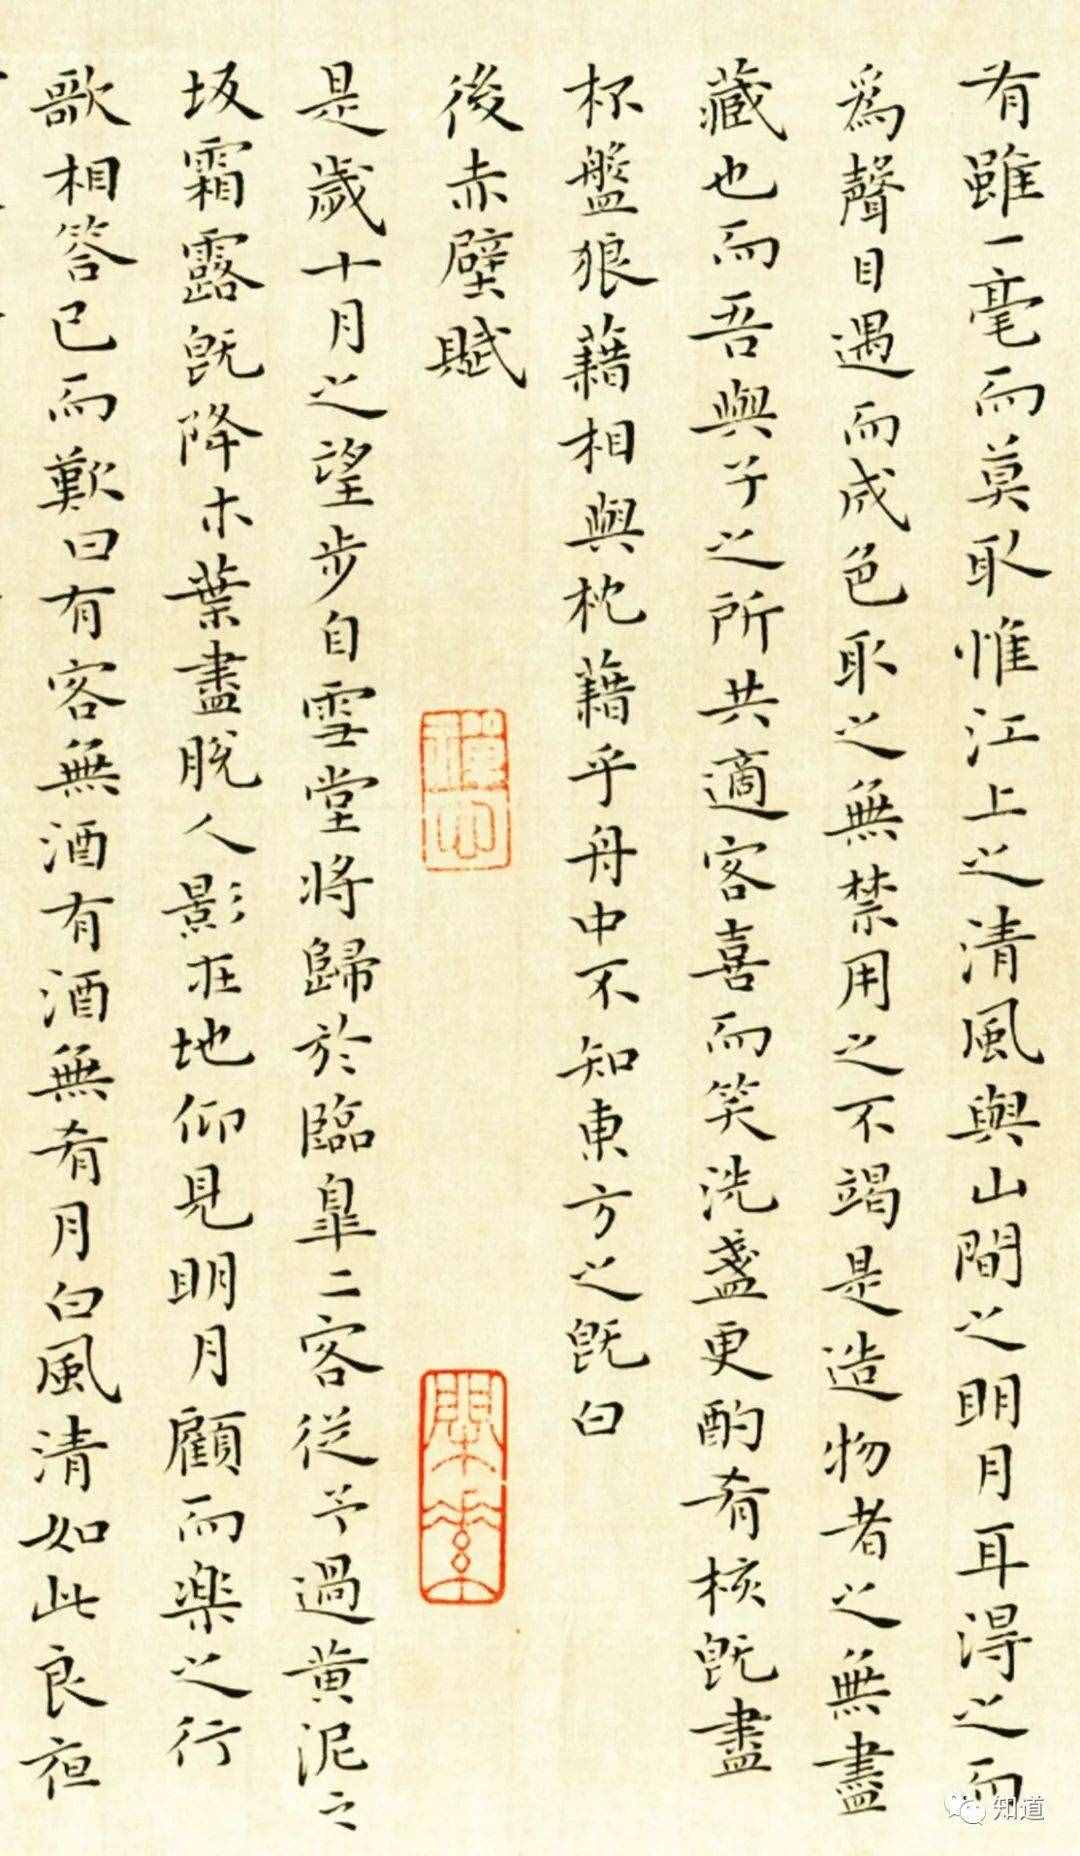 有雖一毫而莫取惟江上之清風與山間之明月耳得之而
爲聲目遇而成色取之無禁用之不竭是造物者之無盡
藏也而吾與子之所共適客喜而笑洗盞更酌肴核既盡
杯盤狼藉相與枕藉乎舟中不知東方之既白
後赤壁賦
是歲十月之望步自雪堂將歸於臨皋二客從予過黃泥之
坂霜露既降木葉盡脫人影在地仰見明月顧而楽之行
歌相答已而歎曰有客無酒有酒無肴月白風清如此良夜
知道